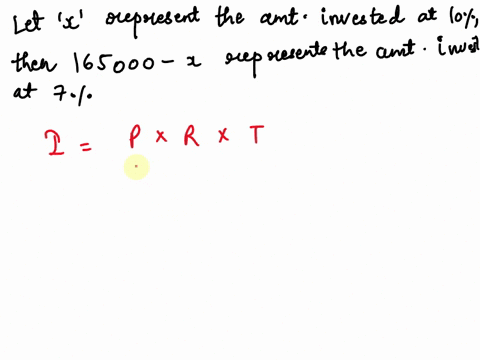 Let 'x' represent the amt. invested at 10%,
then 165000 - x represents the amt. invest
at 7%.
I = P × R × T